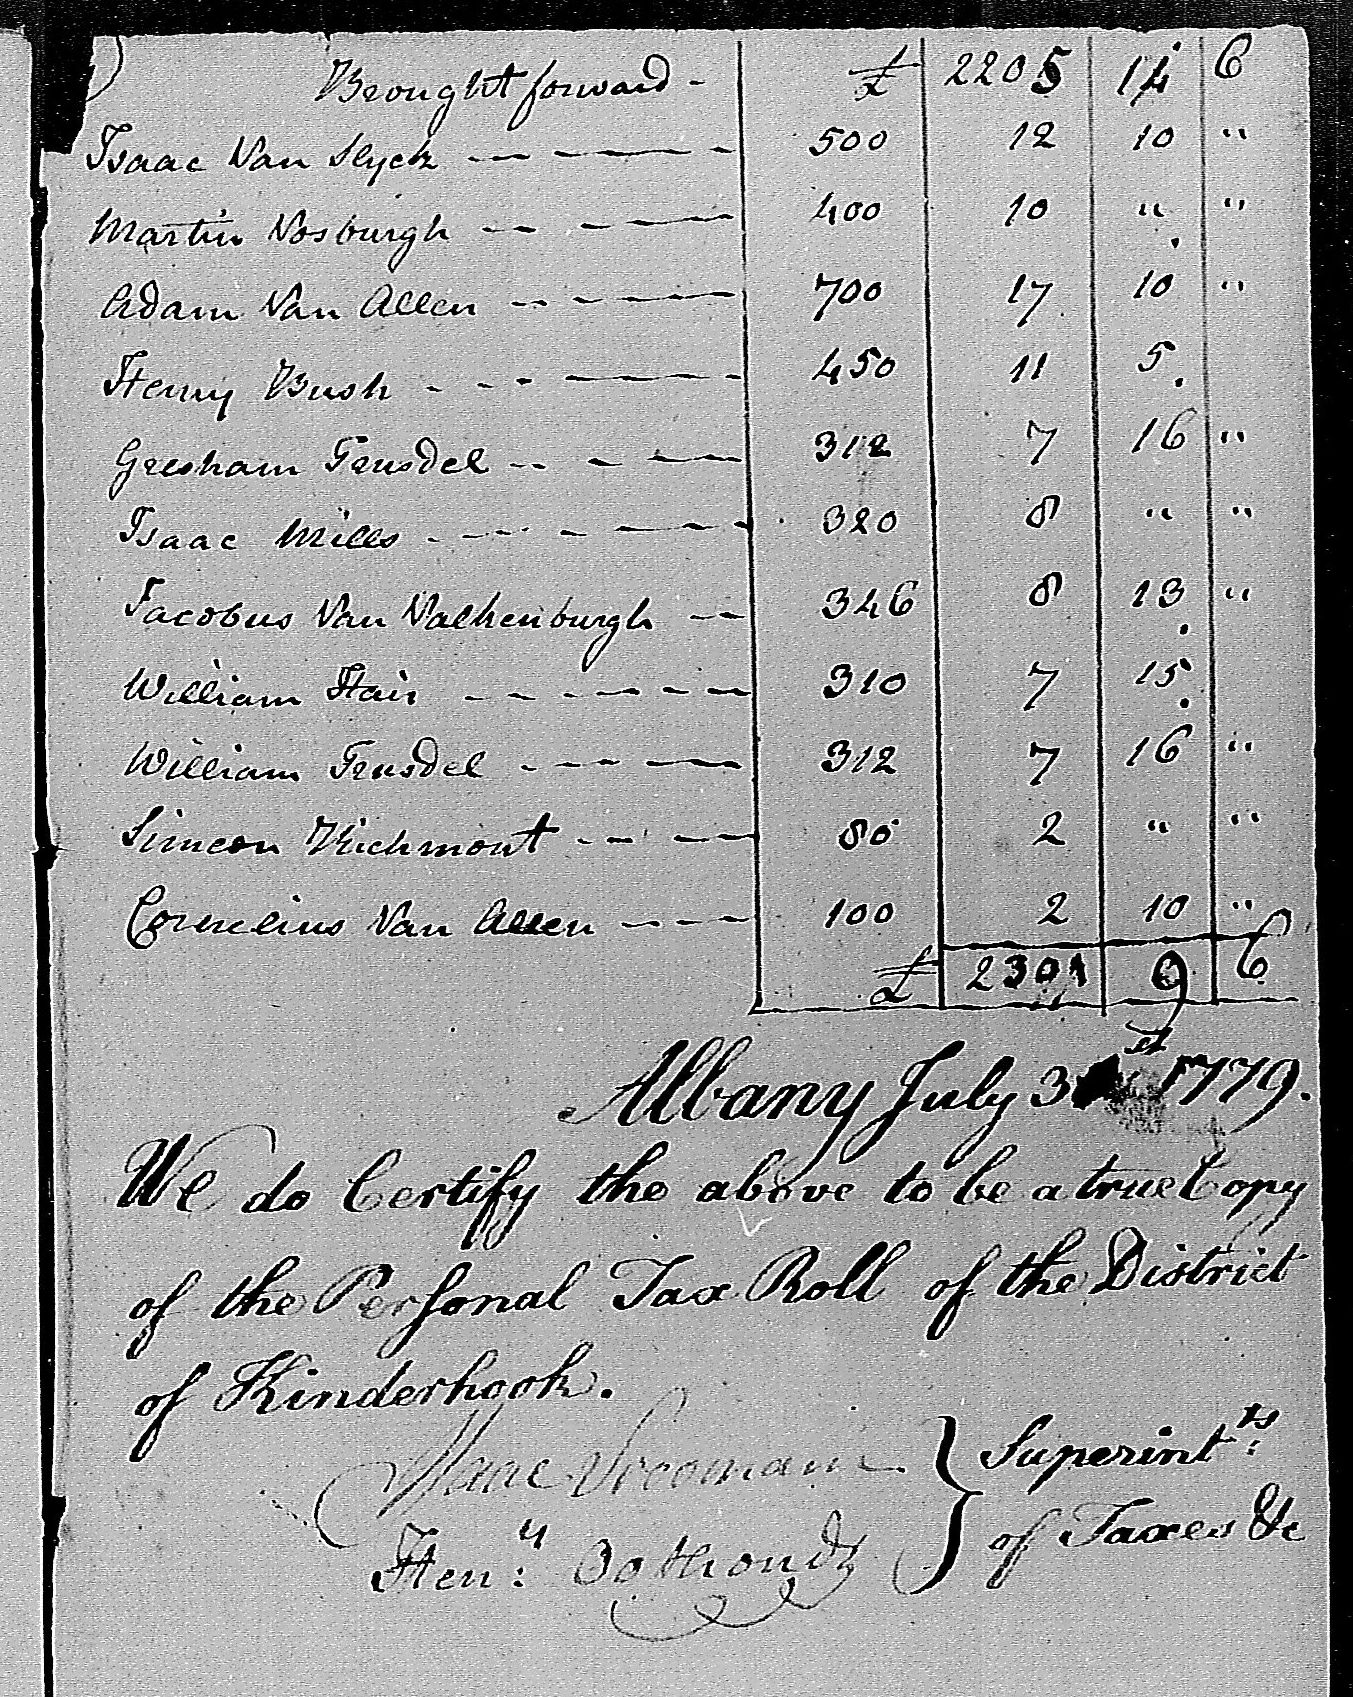 Brought forward - £ 2205 14 6
Isaac Van Slyck 500 12 10 "
Martin Vosburgh 400 10 " "
Adam Van Allen 700 17 10 "
Henry Bush 450 11 5
Gresham Trusdel 312 7 16 "
Isaac Mills 320 8 " "
Jacobus Van Valkenburgh 346 8 13 "
William Hair 310 7 15
William Trusdel 312 7 16 "
Simeon Richmont 80 2 " "
Cornelius Van Allen 100 2 10 "
£ 2301 9 6
Albany July 31st 1779.
We do Certify the above to be a true Copy
of the Personal Tax Roll of the District
of Kinderhook.
Isaac Vrooman } Superint.ts
Hen:y Oothoudt } of Taxes &c